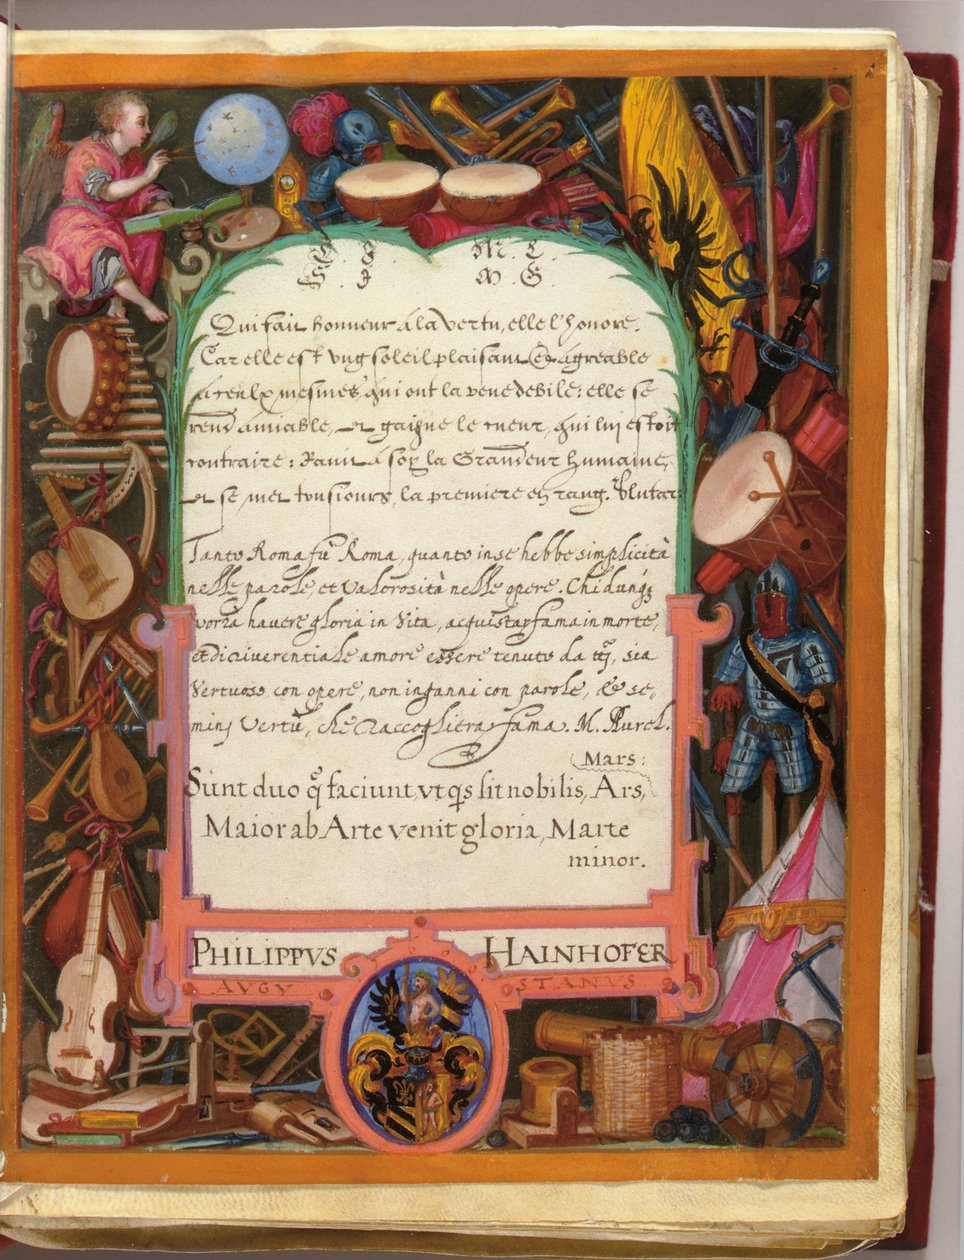 Qui fait honneur á la vertu, elle l'honore.
Car elle est vng soleil plaisant & agreable
á ceulx mesmes, qui ont la veue debile: elle se
rend amiable, et gaigne le cueur, qui lui estoit
contraire: Ravit á soy la Grandeur humaine,
et se met tousiours, la premiere en rang. Plutar:
Tanto Roma fù Roma, quanto in se hebbe simplicità
nelle parole et Valorosità nelle opere. Chi dunq;
vorrà havere gloria in Vita, acquistar fama in morte,
et di riverentiale amore essere tenuto da
Vertuoso con opere, non inganni con parole, & se-
minj Vertù, che raccogliera fama. M. Aurel.
Mars:
Sunt duo q̃ faciunt, vt q̃s sit nobilis, Ars,
Maior ab Arte venit gloria, Marte
minor.
PHILIPPVS HAINHOFER
AVGVSTANVS